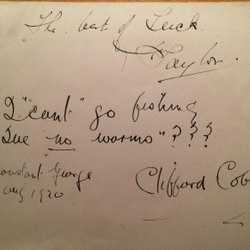 The best of Luck.
Taylor.
I "can't" go fishing
no worms"???
George
Aug 1920
Clifford Cob